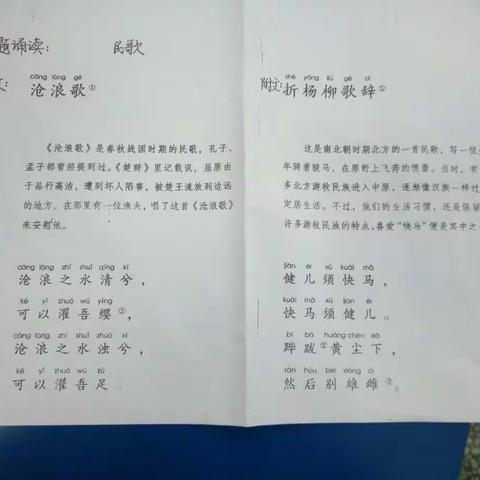 题诵读： 民歌
文： cāng làng gē
沧浪歌①
《沧浪歌》是春秋战国时期的民歌，孔子、
孟子都曾经提到过。《楚辞》里记载说，屈原由
于品行高洁，遭到坏人陷害，被楚王流放到边远
的地方。在那里有一位渔夫，唱了这首《沧浪歌》
来安慰他。
cāng làng zhī shuǐ qīng xī
沧浪之水清兮，
kě yǐ zhuó wú yīng
可以濯吾缨②，
cāng làng zhī shuǐ zhuó xī
沧浪之水浊兮，
kě yǐ zhuó wú zú
可以濯吾足。
zhé yáng liǔ gē cí
附文：折杨柳歌辞①
这是南北朝时期北方的一首民歌，写一位
年骑着骏马，在原野上飞奔的情景。当时，有
多北方游牧民族进入中原，逐渐像汉族一样过
定居生活。不过，他们的生活习惯，还是保留
许多游牧民族的特点，喜爱“快马”便是其中之
jiàn ér xū kuài mǎ
健儿须快马，
kuài mǎ xū jiàn ér
快马须健儿。
bì bá huáng chén xià
跸跋②黄尘下，
rán hòu bié xióng cí
然后别雄雌③。